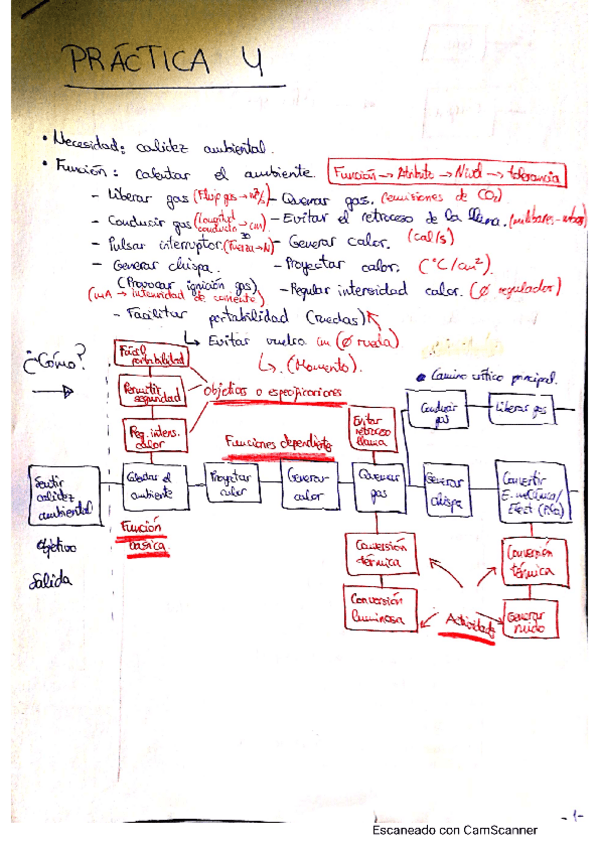 PRÁCTICA 4
• Necesidad: calidez ambiental.
• Función: calentar el ambiente. Función → Atributo → Nivel → tolerancia
- Liberar gas (Flujo gas → m³/s) - Quemar gas. (emisiones de CO₂)
- Conducir gas (longitud conducto → cm) - Evitar el retroceso de la llama. (milibares-)
- Pulsar interruptor. (Fuerza → N) - Generar calor. (cal/s)
- Generar chispa. - Proyectar calor. (°C/cm²).
(Provocar ignición gas)
(mA → intensidad de corriente) - Regular intensidad calor. (Ø regulador)
- Facilitar portabilidad (ruedas)
↳ Evitar vuelco (Ø rueda)
↳ (Momento).
¿Cómo?
→
Fácil portabilidad
Permitir seguridad
Reg. intens. calor
Objetivos o especificaciones
Funciones dependientes
Evitar retroceso llama
• Camino crítico principal.
Conducir gas
Liberar gas
Sentir calidez ambiental
Calentar el ambiente
Proyectar calor
Generar calor
Quemar gas
Generar chispa
Convertir E. mecánica/ Eléct.
Función básica
objetivo
Salida
Conversión térmica
Conversión luminosa
Conversión térmica
Generar ruido
Actividades
-1-
Escaneado con CamScanner